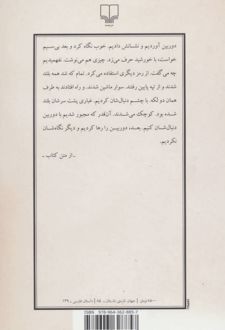 دوربین آوردیم و نشانش دادیم. خوب نگاه کرد و بعد بی‌سیم
خواست، با خورشید حرف می‌زد. چیزی هم می‌نوشت. نفهمیدیم
چه می‌گفت. از رمز دیگری استفاده می‌کرد. تمام که شد همه بلند
شدند و از تپه پایین رفتند. سوار ماشین شدند. و راه افتادند به طرف
همان دو لکه. با چشم دنبال‌شان کردیم. غباری پشت سرشان بلند
شده بود. کوچک می‌شدند. آنقدر که مجبور شدیم با دوربین
دنبال‌شان کنیم. بعد، دوربین را رها کردیم و دیگر نگاه‌شان
نکردیم.
ـ از متن کتاب ـ
ISBN 978-964-362-885-7